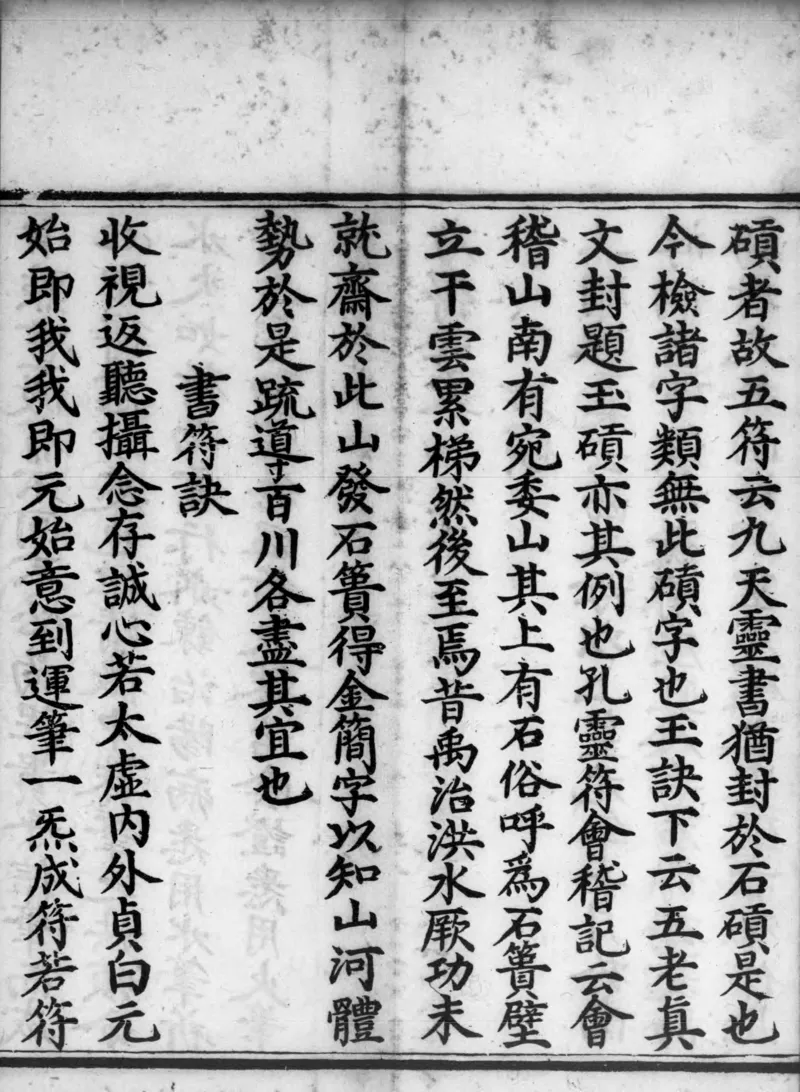 碩者故五符云九天靈書猶封於石碩是也
今檢諸字類無此碩字也玉訣下云五老真
文封題玉碩亦其例也孔靈符會稽記云會
稽山南有宛委山其上有石俗呼為石簣壁
立干雲累梯然後至焉昔禹治洪水厥功未
就齋於此山發石簣得金簡字以知山河體
勢於是疏道寸百川各盡其宜也
書符訣
收視返聽攝念存誠心若太虛內外貞白元
始即我我即元始意到運筆一炁成符若符